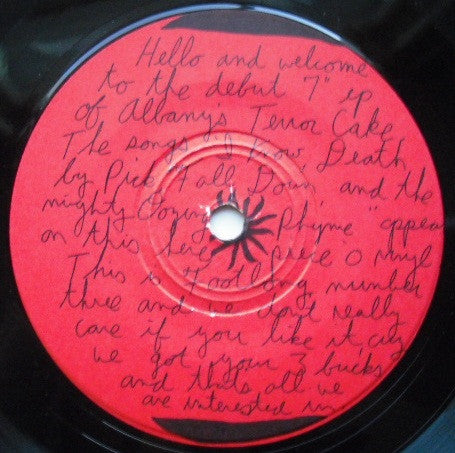 Hello and welcome
to the debut 7" ep
of Albany's Terror Cake
The songs "I Know Death
by Pick" "Fall Down" and the
mighty Rhyme" appear
on this here piece o vinyl
This is Footlong number
three and we don't really
care if you like it, cuz
we got your 3 bucks
and thats all we
are interested in